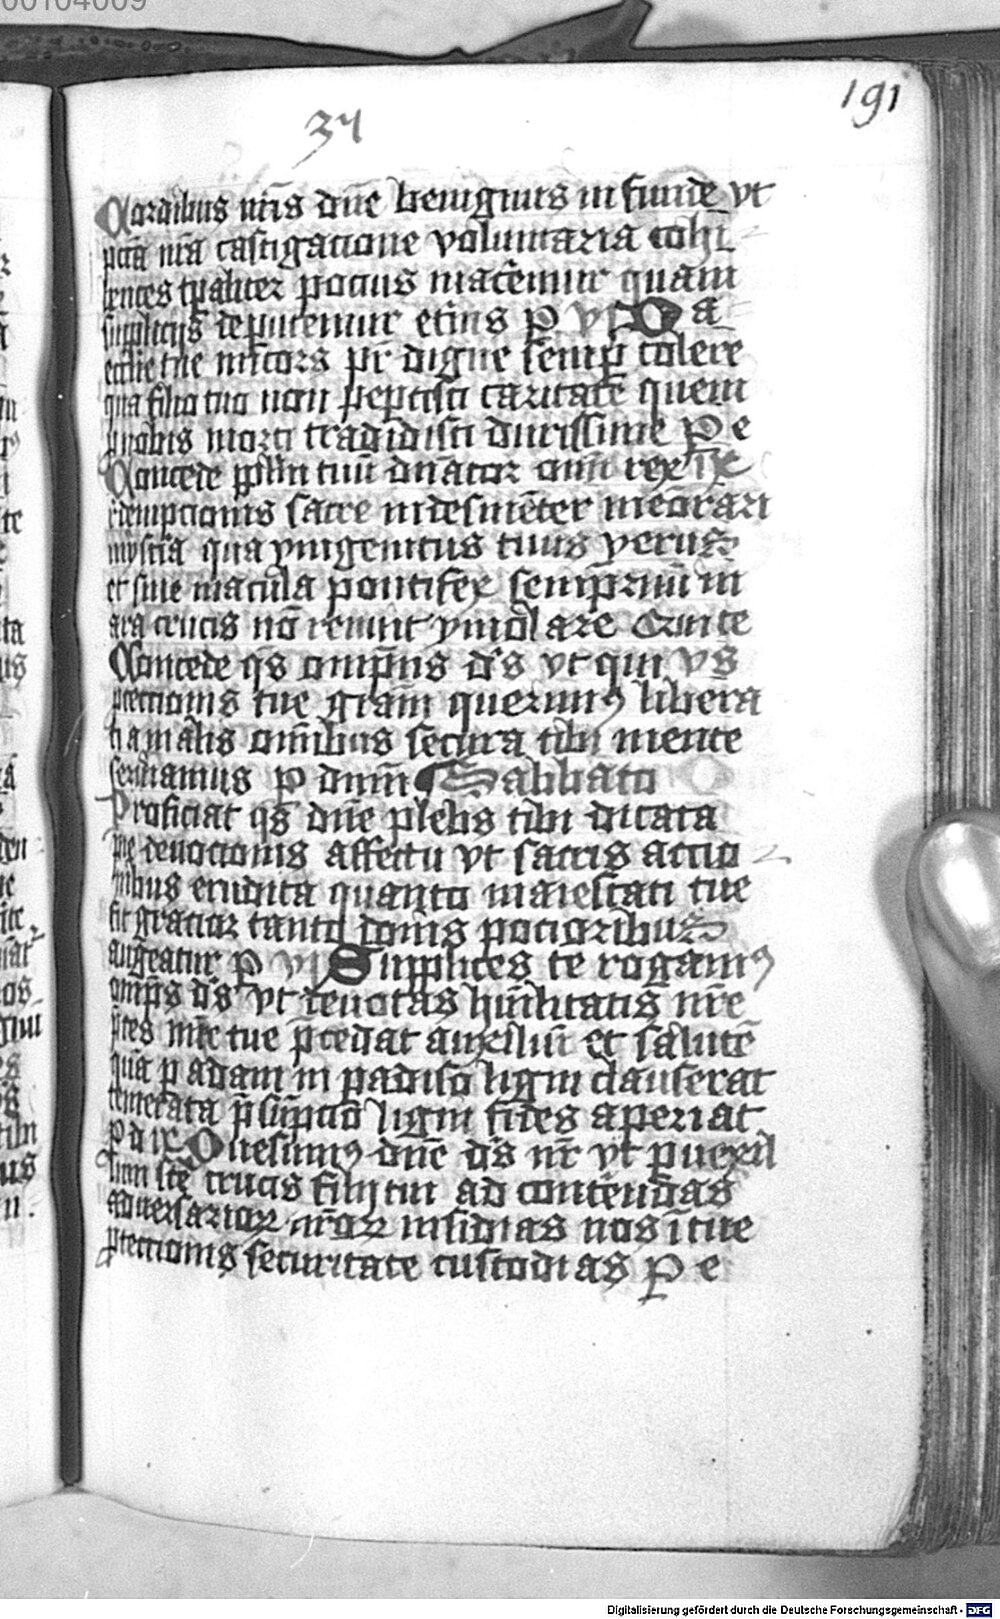 191
34
Cordibus nr̄is dn̄e benignus in funde vt
pctā nrā castigacione voluntaria cohi
bentes tp̄aliter pocius macēmur quam
suppliciis deputemur et̄nis P vſ Da
eccl̄ie tue mīcors pr̄ digne semp̄ colere
qua filio tuo non pepcisti caritate quem
ꝓ nobis morti tradidisti durissime P e
Concede ppl̄m tuū dn̄ator om̄i rex
redempcionis sacre indesinēter meōrari
mist̓ia qua vnigenitus tuus verus
et sine macula pontifex semp̄nū in
ara crucis nō renuit ymolare
Concede qs̄ omp̄ns ds̄ vt qui vs̄
ꝓtectionis tue grām querimꝰ libera
ti a malis om̄ibus secura tibi mente
seruiamus P dnm̄ Sabbato
Proficiat qs̄ dn̄e plebs tibi dicata
pie deuocionis affectu vt sacris actio
nibus erudita quanto maiestati tue
fit gratior tanto donis pocioribus
augeatur P vſ Supplices te rogamꝰ
omp̄s ds̄ vt deuotas hūilitatis nr̄e
p̄ces mīe tue p̄cedat auxiliū et salutē
quā p adam in padiso ligni clauserat
temerata p̄sūpcio ligni fides aperiat
P Quesumꝰ dn̄e ds̄ nr̄ vt p vexil
lum scē crucis filij tui ad contēndas
aduersarioꝝ nr̄oꝝ insidias nos ī tue
ꝓtectionis securitate custodias P e
Digitalisierung gefördert durch die Deutsche Forschungsgemeinschaft - DFG